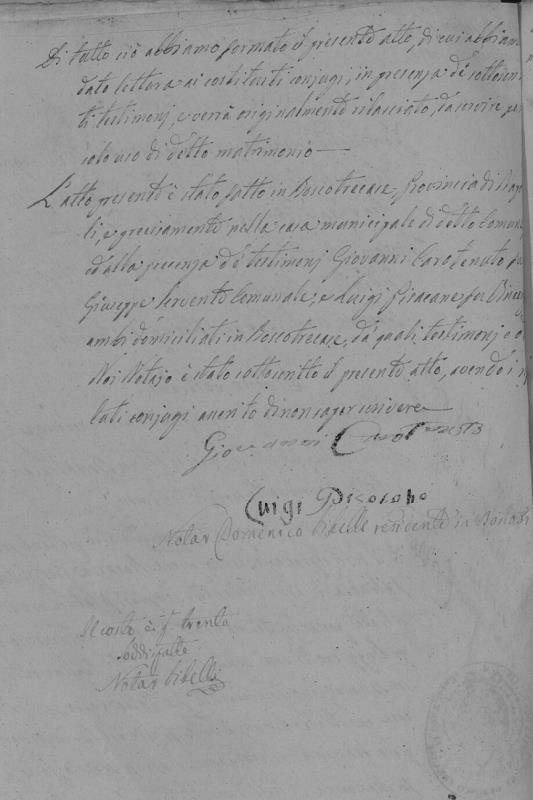 Di tutto ciò abbiamo formato il presente atto, di cui abbiam
dato lettura ai costituiti conjugi, in presenza de' sottoscrit
ti testimonj, e verrà originalmente rilasciato, da servire per
solo uso di detto matrimonio —
L'atto presente è stato fatto in Boscotrecase, Provincia di Nap
li, e precisamente nella casa municipale di detto Comune
ed alla presenza de' testimonj Giovanni Carotenuto fu
Giuseppe Servente Comunale, e Luigi Pisacane fu Vincen
ambi domiciliati in Boscotrecase, da' quali testimonj e da
Noi Notajo è stato sottoscritto il presente atto, avendo i
lati conjugi asserito di non saper scrivere
Giovanni Carotenuto
Luigi Pisacane
Notar Domenico Cibelli residente in Boscotr
Il costo è g. trenta
soddisfatte
Notar Cibelli